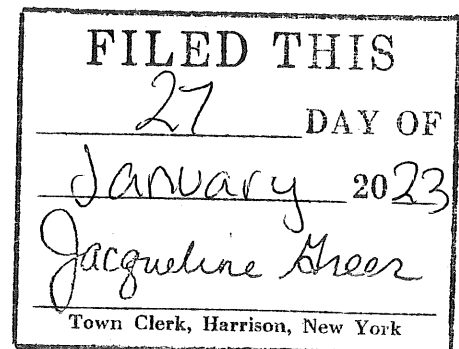 FILED THIS
27 DAY OF
January 2023
Jacqueline Greer
Town Clerk, Harrison, New York